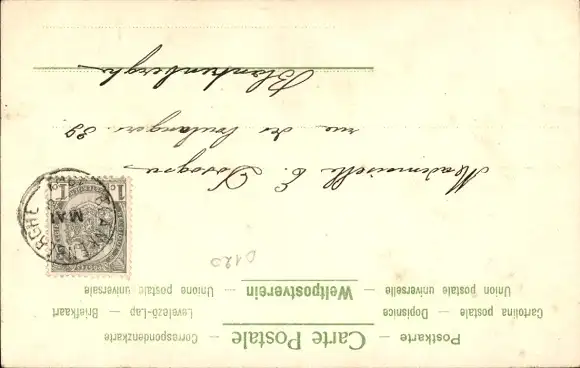 Postkarte — Carte Postale — Correspondenzkarte
Cartolina postale — Dopisnice — Levelező-Lap — Briefkaart
Union postale universelle — Weltpostverein — Unione postale universale
0120
1c 1c
BLANKENBERGHE
MAI
Mademoiselle E.
rue des boulangers 39
Blankenberghe